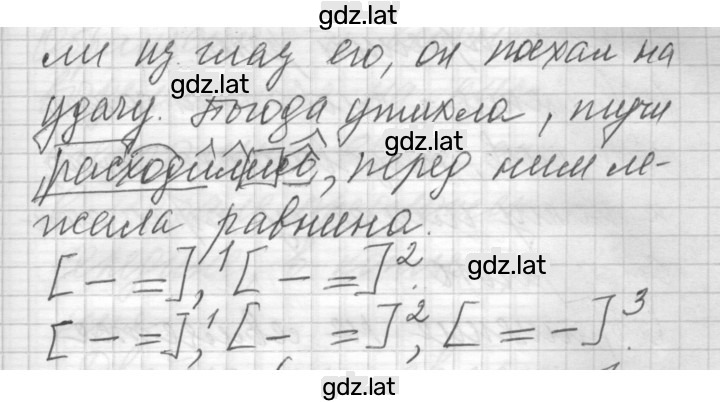 gdz.lat
ли из глаз его, он поехал на
gdz.lat
удачу. Погода утихла, тучи
gdz.lat
расходились, перед ним ле-
жала равнина.
[ – = ],¹ [ – = ]².
gdz.lat
[ – = ],¹ [ – = ]², [ = – ]³.
gdz.lat